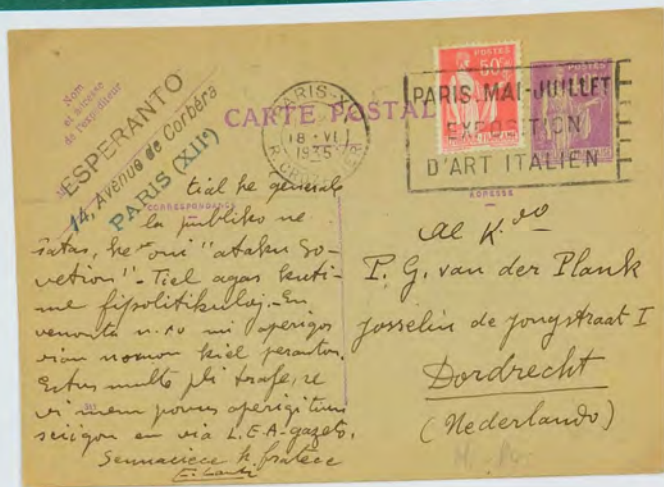 Nom
et adresse
de l'expéditeur
ESPERANTO
14, Avenue de Corbéra
PARIS (XIIe)
CARTE POSTALE
PARIS-XII
18 - VI
1935
PARIS. MAI-JUILLET
EXPOSITION
D'ART ITALIEN
POSTES
50c
POSTES
CORRESPONDANCE
ADRESSE
tial ke generale
la publiko ne
ŝatas, ke oni "ataku So-
vetion" - Tiel agas kuti-
me fipolitikuloj. - En
venonta n-ro mi aperigos
vian nomon kiel peranton.
Estus multe pli trafe, se
vi mem povus aperigi tiun
sciigon en via L.E.A-gazeto.
Sennaciece k. fratece
E. Lanti
Al K-do
P. G. van der Plank
Josselin de Jongstraat I
Dordrecht
(Nederlando)